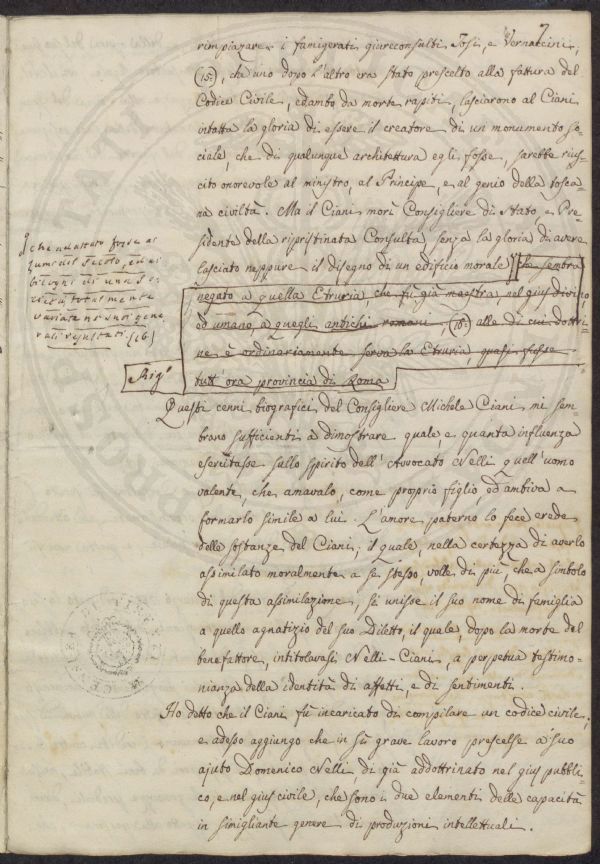 7
rimpiazzare i famigerati giureconsulti Tosi, e Vernaccini,
(15.), che uno dopo l'altro era stato prescelto alla fattura del
Codice Civile, edambo da morte rapiti, lasciarono al Ciani
intatta la gloria di essere il creatore di un monumento so-
ciale, che di qualunque architettura egli fosse, sarebbe rius-
cito onorevole al ministro, al Principe, e al genio della tosca-
na civiltà. Ma il Ciani morì Consigliere di Stato, e Pre-
sidente della ripristinata Consulta senza la gloria di avere
lasciato neppure il disegno di un edificio morale, che sembra
negato a quella Etruria che fù già maestra, nel gius divino
ed umano, a quegli antichi romani, (16.) alle di cui dottri-
ne è ordinariamente serva la Etruria, quasi fosse
tutt'ora provincia di Roma
che
secolo, ai
bisogni di una so-
cietà totalmente
variata ne' suoi gene-
rali (16)
Rigo
Questi cenni biografici del Consigliere Michele Ciani mi sem-
brano sufficienti a dimostrare quale, e quanta influenza
esercitasse sullo spirito dell'Avvocato Nelli quell'uomo
valente, che amavalo, come proprio figlio, ed ambiva a
formarlo simile a lui. L'amore paterno lo fece erede
delle sostanze del Ciani, il quale, nella certezza di averlo
assimilato moralmente a se stesso, volle di più, che a simbolo
di questa assimilazione, si unisse il suo nome di famiglia
a quello agnatizio del suo Diletto, il quale, dopo la morte del
benefattore, intitolavasi Nelli-Ciani, a perpetua testimo-
nianza della identità di affetti, e di sentimenti.
Ho detto che il Ciani fù incaricato di compilare un codice civile,
e adesso aggiungo che in sì grave lavoro prescelse a suo
ajuto Domenico Nelli di già addottrinato nel gius pubbli-
co, e nel gius civile, che sono i due elementi delle capacità
in simigliante genere di produzioni intellettuali.